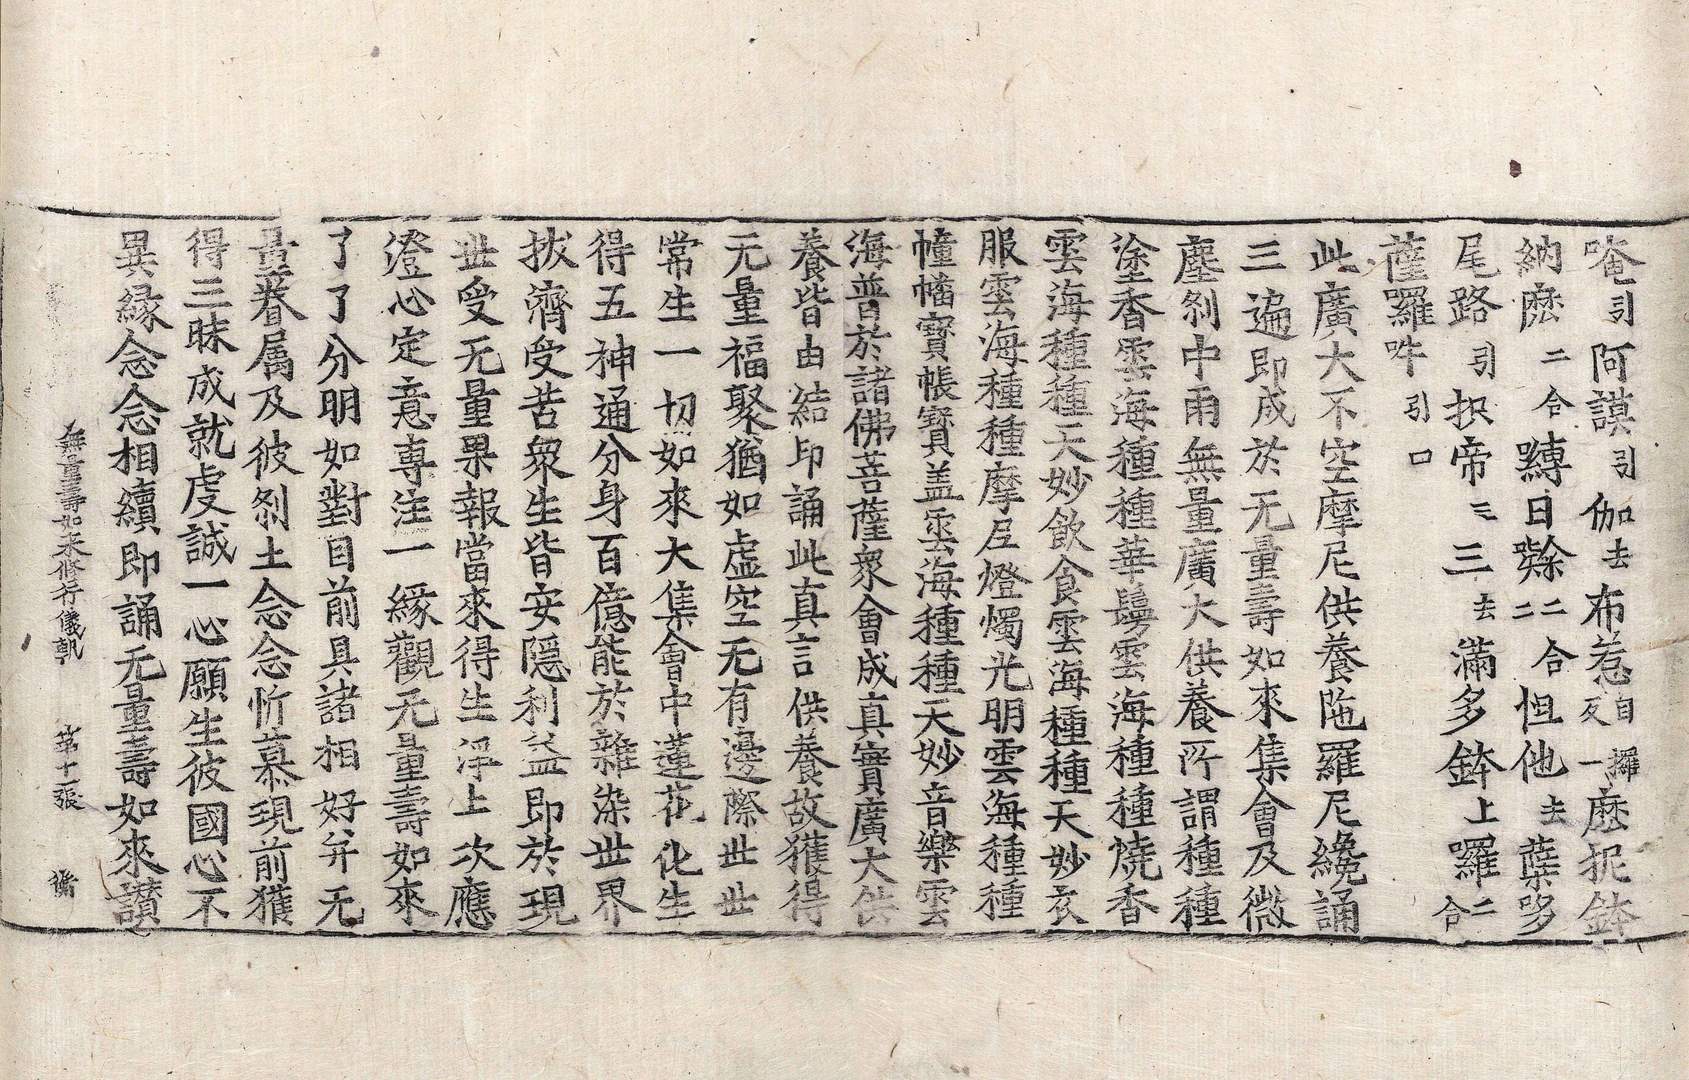 唵引阿謨引伽去布惹自攞反一麼抳鉢
納麽二合嚩日𱊈二合二怛他去蘖哆
尾路引枳帝三三去滿多鉢上囉二合
薩羅吽引口
此廣大不空摩尼供養陁羅尼纔誦
三遍即成於无量壽如來集會及微
塵刹中雨無量廣大供養所謂種種
塗香雲海種種華鬘雲海種種燒香
雲海種種天妙飲食雲海種種天妙衣
服雲海種種摩尼燈燭光明雲海種種
幢幡寶帳寶盖雲海種種天妙音樂雲
海普於諸佛菩薩衆會成真實廣大供
養皆由結印誦此真言供養故獲得
无量福聚猶如虛空无有邊際世世
常生一切如來大集會中蓮花化生
得五神通分身百億能於雜染世界
拔濟受苦衆生皆安隱利益即於現
世受无量果報當來得生淨土次應
澄心定意專注一緣觀无量壽如來
了了分明如對目前具諸相好并无
量眷属及彼刹土念念忻慕現前獲
得三昧成就虔誠一心願生彼國心不
異緣念念相續即誦无量壽如來讃
無量壽如来修行儀軌 第十一張